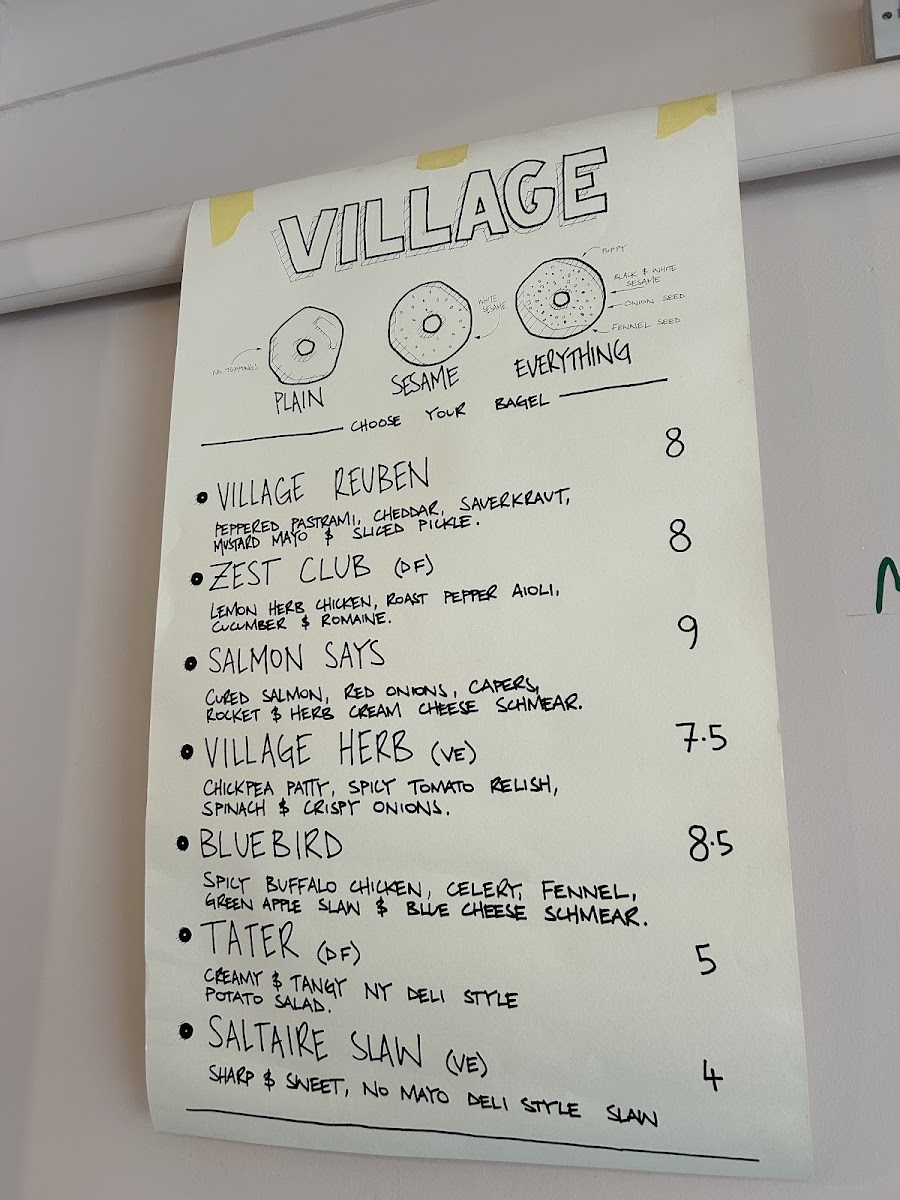 VILLAGE
POPPY
BLACK & WHITE
SESAME
WHITE
SESAME
ONION SEED
FENNEL SEED
NO TOPPING!
PLAIN
SESAME
EVERYTHING
CHOOSE YOUR BAGEL
• VILLAGE REUBEN 8
PEPPERED PASTRAMI, CHEDDAR, SAUERKRAUT,
MUSTARD MAYO & SLICED PICKLE.
• ZEST CLUB (DF) 8
LEMON HERB CHICKEN, ROAST PEPPER AIOLI,
CUCUMBER & ROMAINE.
• SALMON SAYS 9
CURED SALMON, RED ONIONS, CAPERS,
ROCKET & HERB CREAM CHEESE SCHMEAR.
• VILLAGE HERB (VE) 7.5
CHICKPEA PATTY, SPICY TOMATO RELISH,
SPINACH & CRISPY ONIONS.
• BLUEBIRD 8.5
SPICY BUFFALO CHICKEN, CELERY, FENNEL,
GREEN APPLE SLAW & BLUE CHEESE SCHMEAR.
• TATER (DF) 5
CREAMY & TANGY NY DELI STYLE
POTATO SALAD.
• SALTAIRE SLAW (VE) 4
SHARP & SWEET, NO MAYO DELI STYLE SLAW